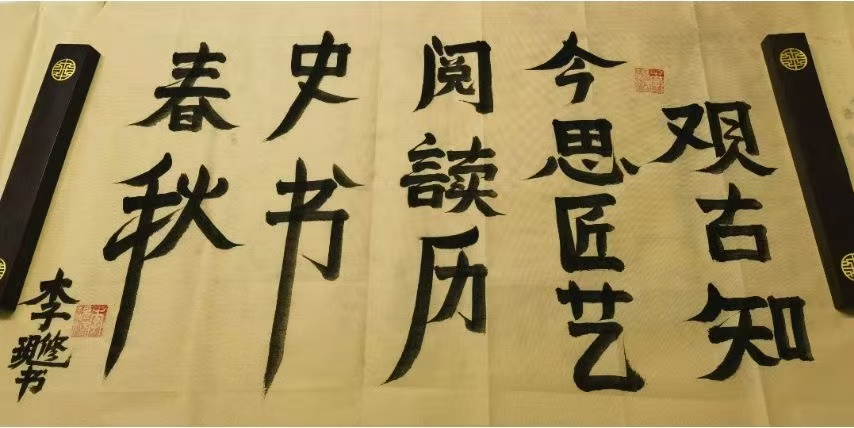 观古知
今思匠艺
阅读历
史书
春秋
李修
现书